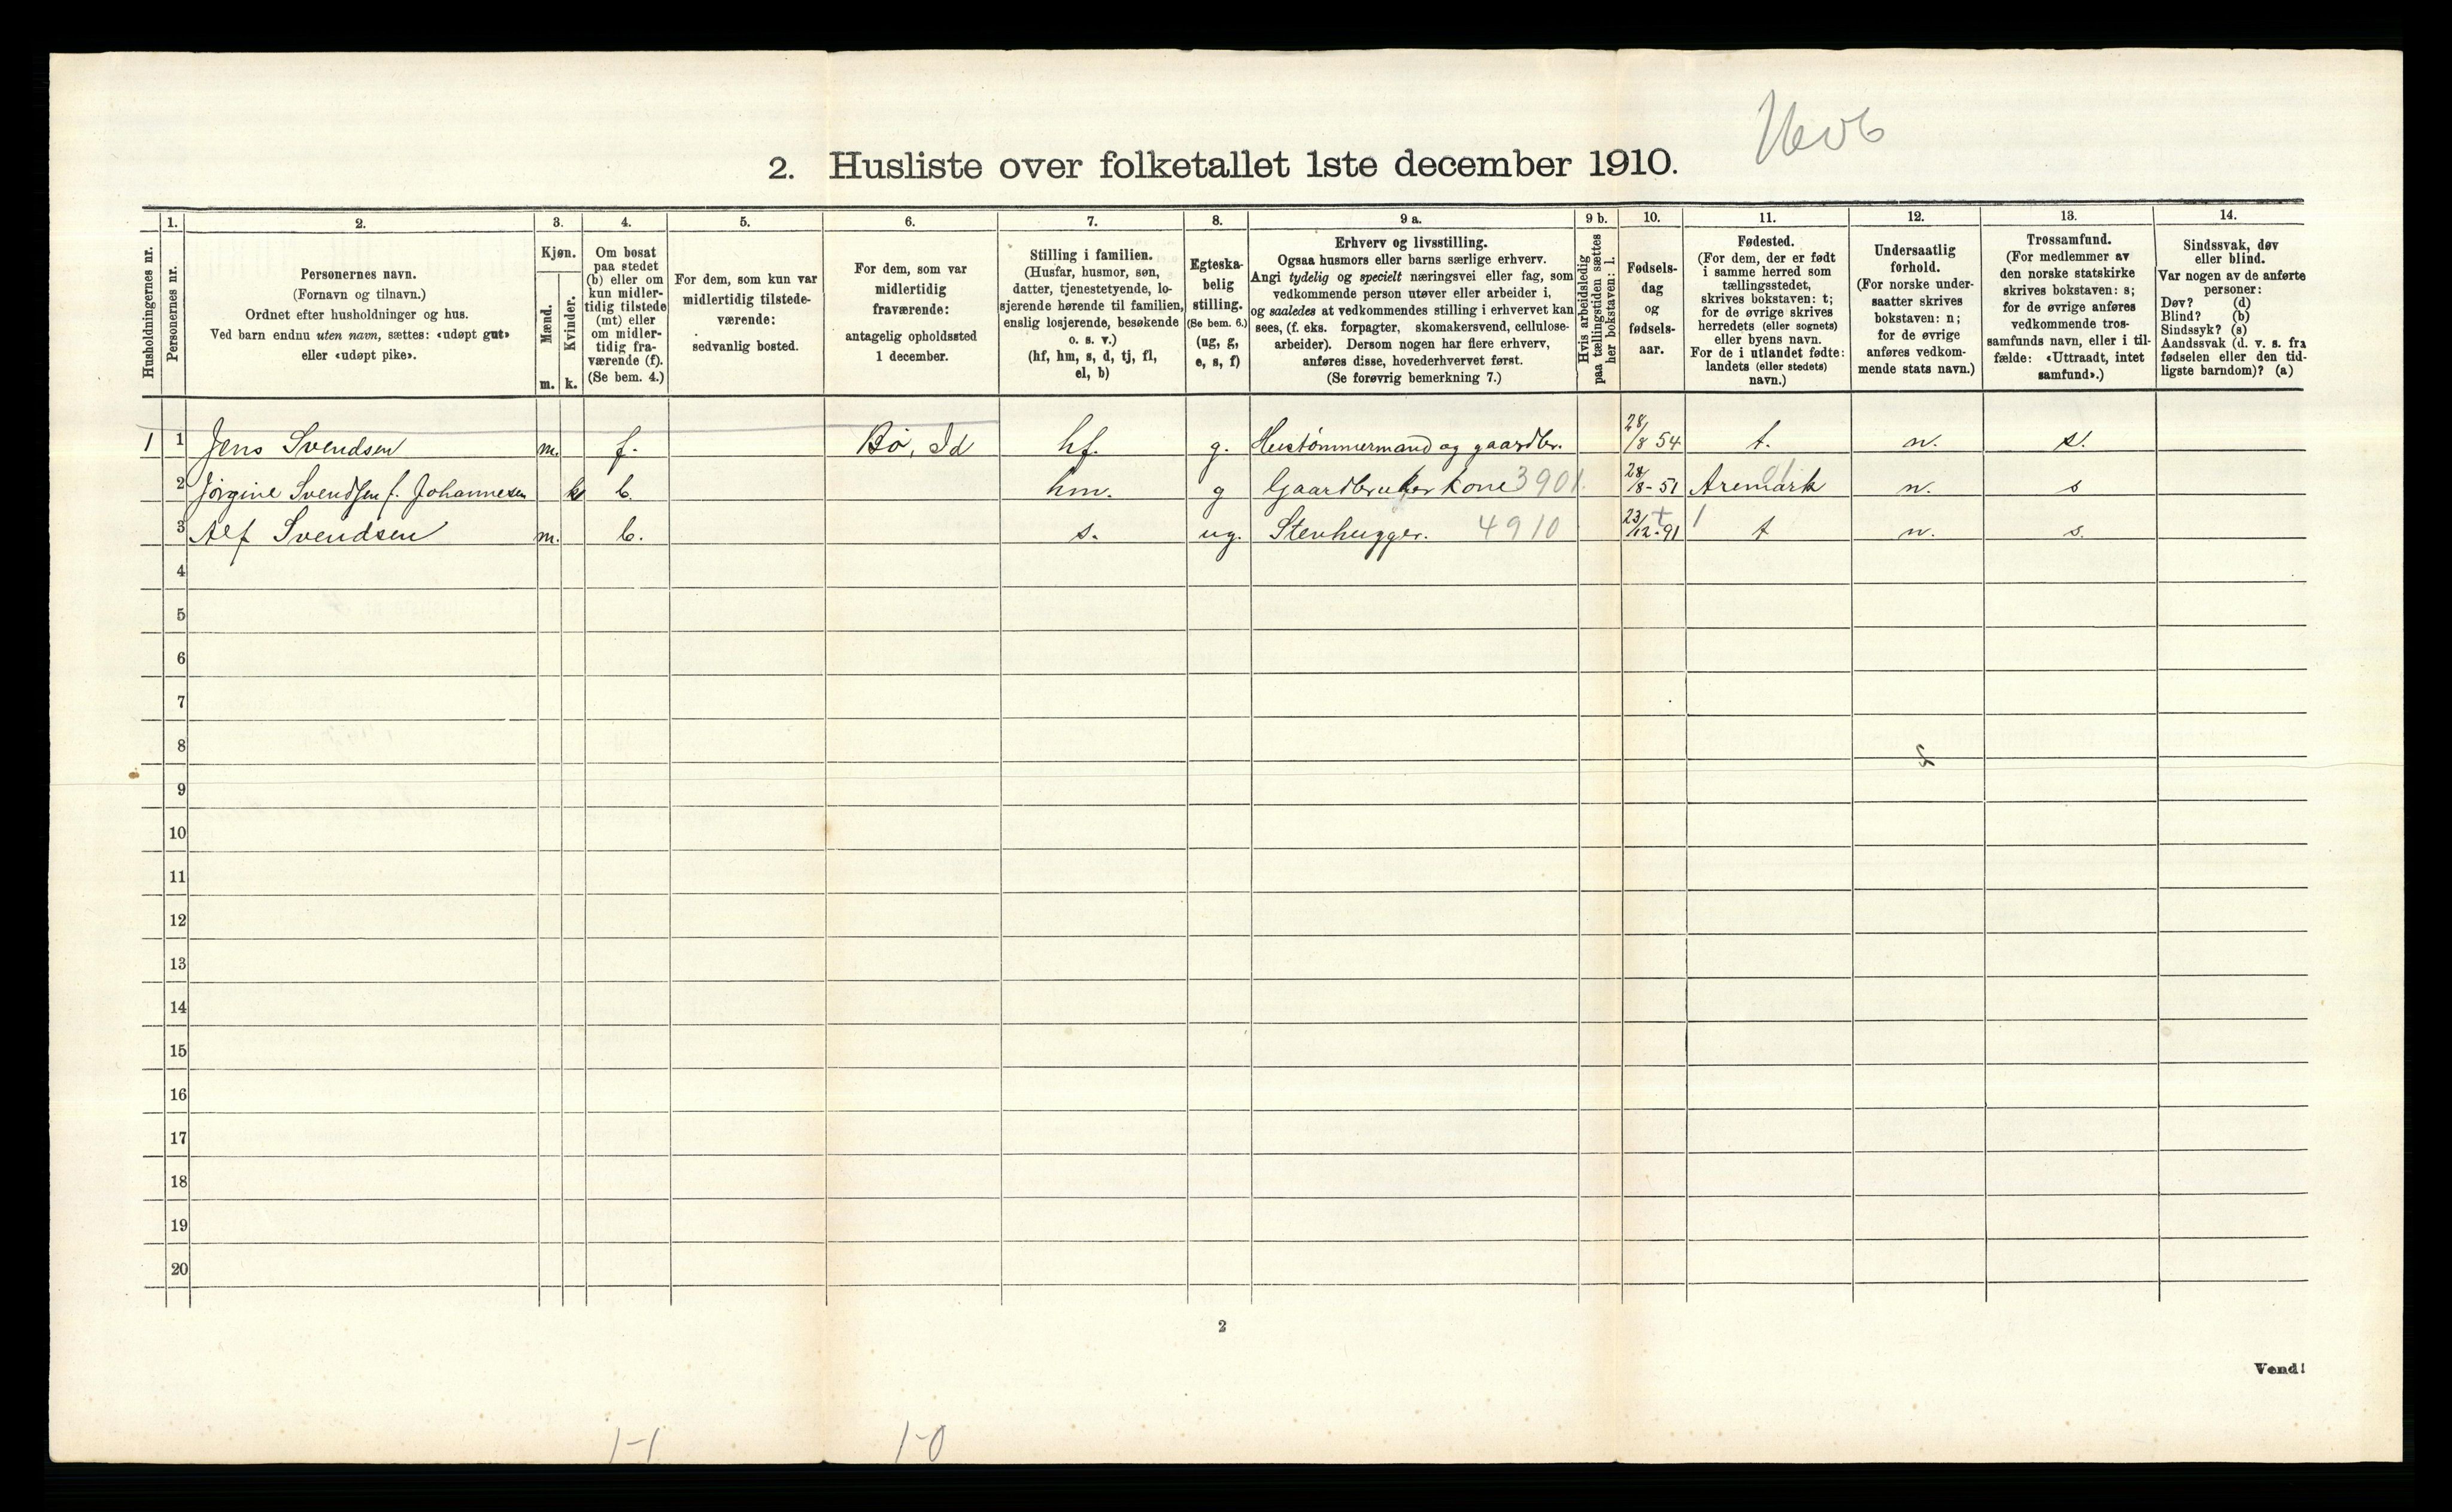 2. Husliste over folketallet 1ste december 1910.
1. 2. 3. 4. 5. 6. 7. 8. 9 a. 9 b. 10. 11. 12. 13. 14.
Husholdningernes nr.
Personernes nr.
Personernes navn.
(Fornavn og tilnavn.)
Ordnet efter husholdninger og hus.
Ved barn endnu uten navn, sættes: «udøpt gut»
eller «udøpt pike».
Kjøn.
Mænd.
m.
Kvinder.
k.
Om bosat
paa stedet
(b) eller om
kun midler-
tidig tilstede
(mt) eller
om midler-
tidig fra-
værende (f).
(Se bem. 4.)
For dem, som kun var
midlertidig tilstede-
værende:
sedvanlig bosted.
For dem, som var
midlertidig
fraværende:
antagelig opholdssted
1 december.
Stilling i familien.
(Husfar, husmor, søn,
datter, tjenestetyende, lo-
sjerende hørende til familien,
enslig losjerende, besøkende
o. s. v.)
(hf, hm, s, d, tj, fl,
el, b)
Egteska-
belig
stilling.
(Se bem. 6.)
(ug, g,
e, s, f)
Erhverv og livsstilling.
Ogsaa husmors eller barns særlige erhverv.
Angi tydelig og specielt næringsvei eller fag, som
vedkommende person utøver eller arbeider i,
og saaledes at vedkommendes stilling i erhvervet kan
sees, (f. eks. forpagter, skomakersvend, cellulose-
arbeider). Dersom nogen har flere erhverv,
anføres disse, hovederhvervet først.
(Se forøvrig bemerkning 7.)
Hvis arbeidsledig
paa tællingstiden sættes
her bokstaven: l.
Fødsels-
dag
og
fødsels-
aar.
Fødested.
(For dem, der er født
i samme herred som
tællingsstedet,
skrives bokstaven: t;
for de øvrige skrives
herredets (eller sognets)
eller byens navn.
For de i utlandet fødte:
landets (eller stedets)
navn.)
Undersaatlig
forhold.
(For norske under-
saatter skrives
bokstaven: n;
for de øvrige
anføres vedkom-
mende stats navn.)
Trossamfund.
(For medlemmer av
den norske statskirke
skrives bokstaven: s;
for de øvrige anføres
vedkommende tros-
samfunds navn, eller i til-
fælde: «Uttraadt, intet
samfund».)
Sindssvak, døv
eller blind.
Var nogen av de anførte
personer:
Døv? (d)
Blind? (b)
Sindssyk? (s)
Aandssvak (d. v. s. fra
fødselen eller den tid-
ligste barndom)? (a)
1 1 Jens Svendsen m. f. Bø, Id hf. g. Hustømmermand og gaardbr. 28/8 54 t. n. s.
2 Jørgine Svendsen f. Johannesen k b. hm. g Gaardbrukerkone 3901. 28/8-51 Aremark 01 n. s
3 Alf Svendsen m. b. s. ug. Stenhugger. 4910 23/12-91 t n. s.
4
5
6
7
8
9
10
11
12
13
14
15
16
17
18
19
20
2
Vend!
1-1 1-0